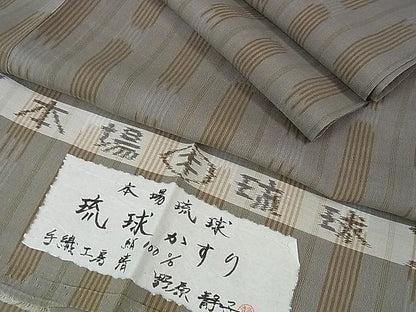 本場琉球
本場琉球
琉球かすり
絹100%
手織工房 清
野原 静子